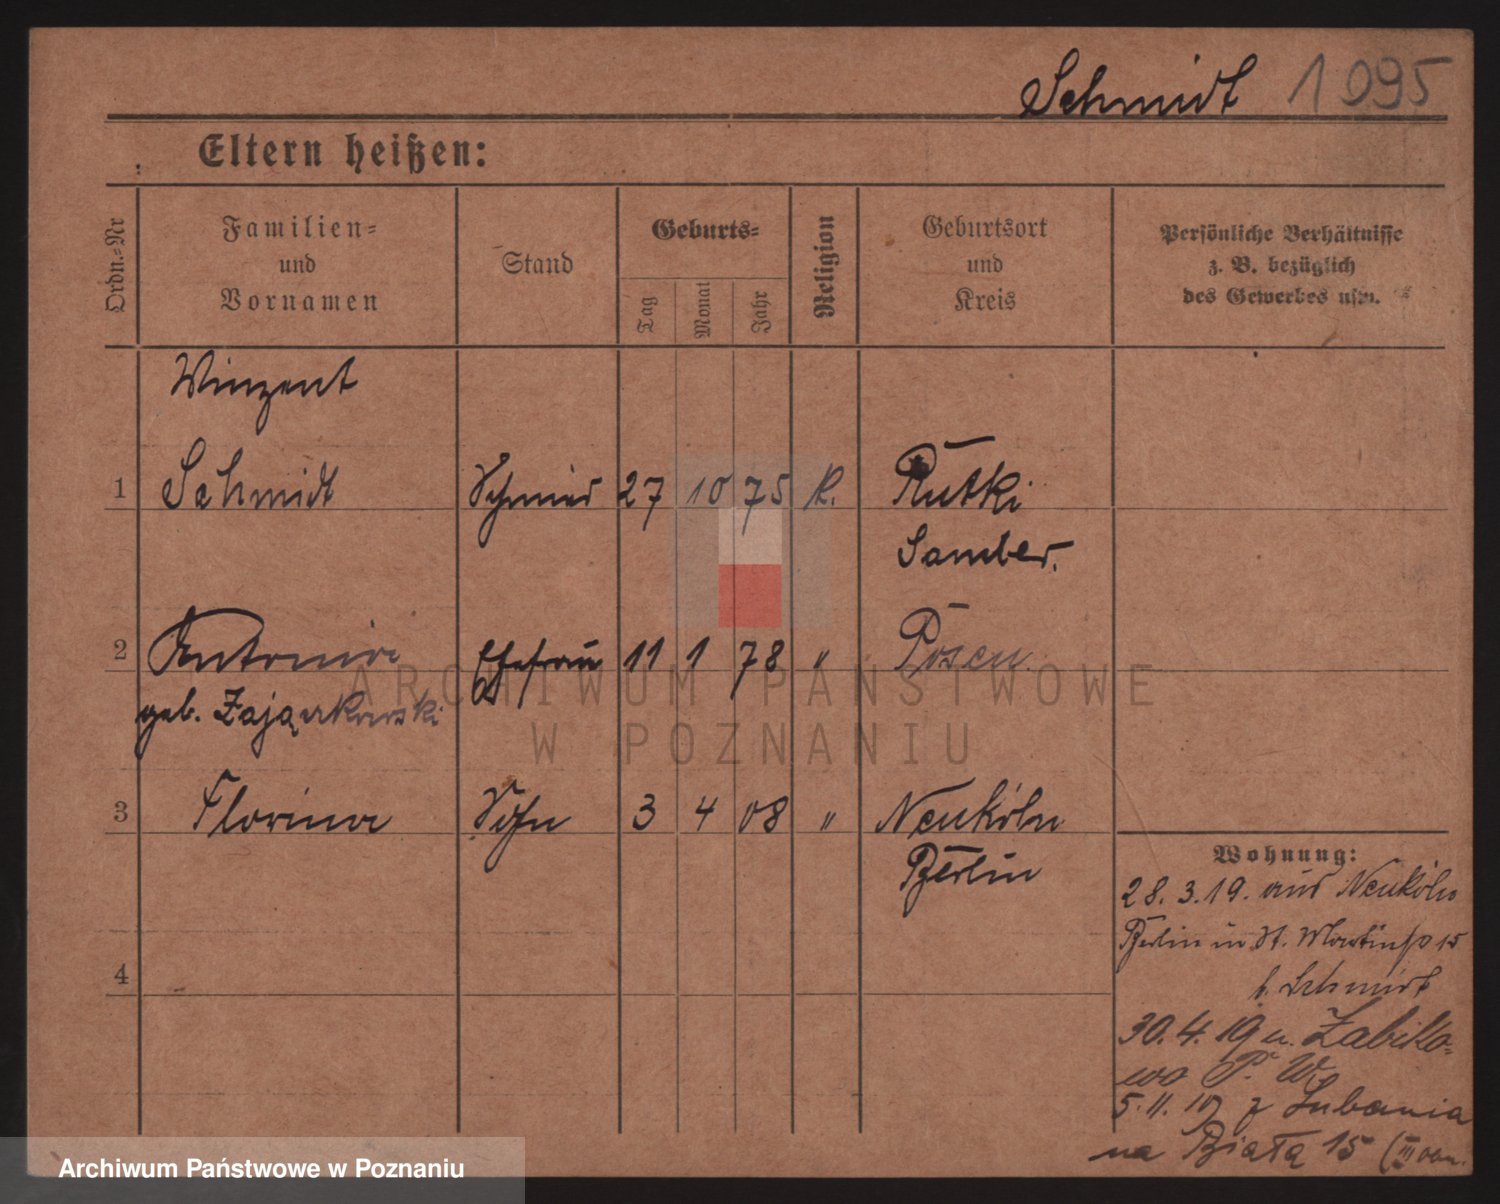 Schmidt 1095
Eltern heißen:
Ordn.=Nr
Familien=
und
Vornamen
Stand
Geburts=
Tag
Monat
Jahr
Religion
Geburtsort
und
Kreis
Persönliche Verhältnisse
z. B. bezüglich
des Gewerbes usw.
Winzent
1 Schmidt Schmied 27 10 75 K. Rutki
Samter.
2 Antonia Ehefrau 11 1 78 " Posen.
geb. Zającskowski
3 Florina Sohn 3 4 08 " Neuköln
Berlin
Wohnung:
28. 3. 19. aus Neuköln
Berlin in St. Martinstr 15
b. Schmidt
4
30. 4. 19 n. Zabiko=
wo P. W.
5. 11. 19 z Lubania
na Białą 15 (III
ARCHIWUM PAŃSTWOWE
W POZNANIU
Archiwum Państwowe w Poznaniu